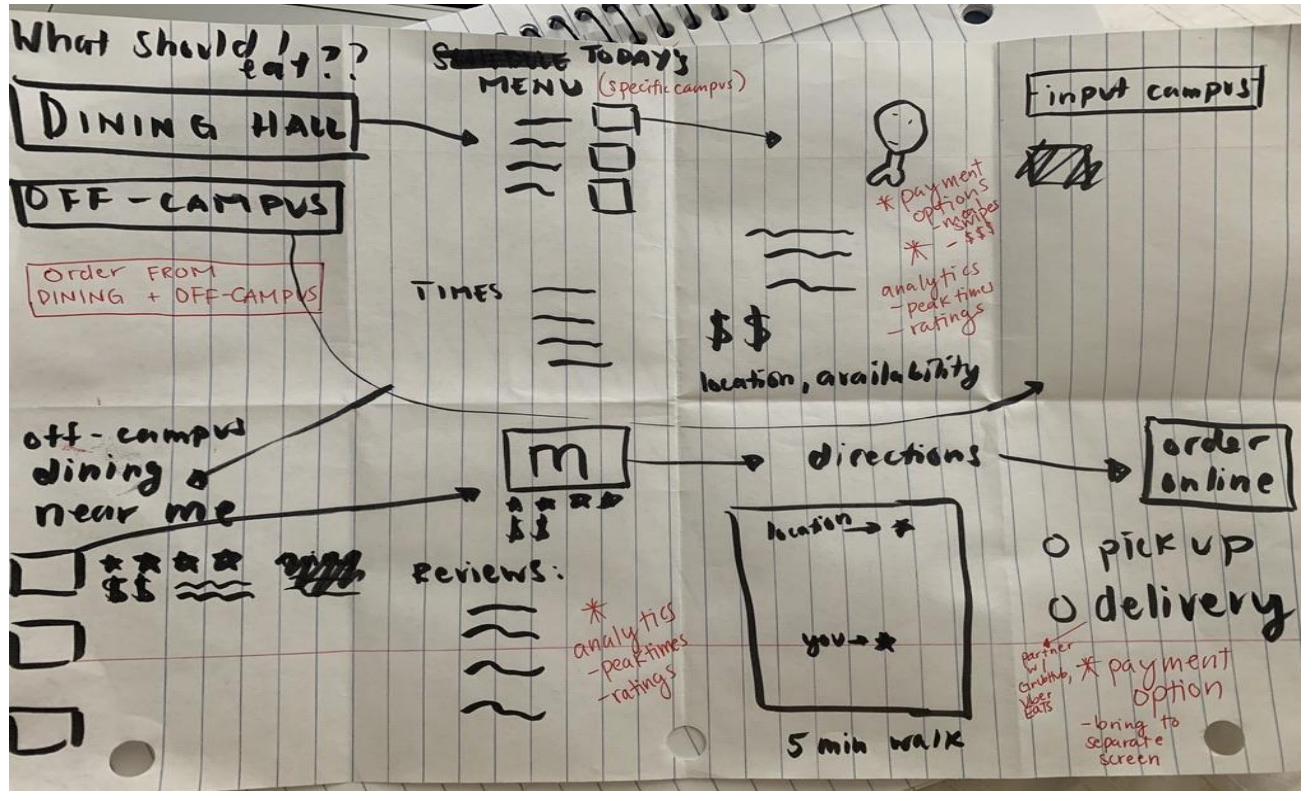 What should I
eat??
DINING HALL
OFF-CAMPUS
Order FROM
DINING + OFF-CAMPUS
TODAY'S
MENU (specific campus)
TIMES
* payment
options
- swipes
* - $$$
analytics
- peak times
- ratings
$$
location, availability
input campus
off-campus
dining
near me
$$
m
$$
Reviews:
*
analytics
- peak times
- ratings
directions
location
you
5 min walk
order
online
pick up
delivery
partner
w/
GrubHub,
Uber
Eats
* payment
option
- bring to
separate
screen